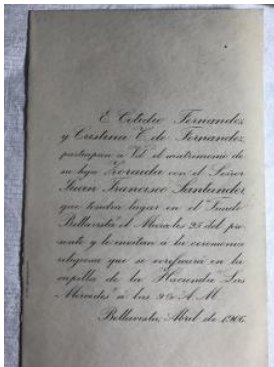 E. Cotidio Fernandez
y Cristina C. de Fernandez
participan a Vd. el matrimonio de
su hija Zoraida con el Señor
Juan Francisco Santander
que tendrá lugar en el Fundo
Bellavista el Miércoles 25 del pre-
sente y le invitan à la ceremonia
religiosa que se verificará en la
capilla de la Hacienda Las
Mercedes à las 9½ A. M.
Bellavista, Abril de 1906.